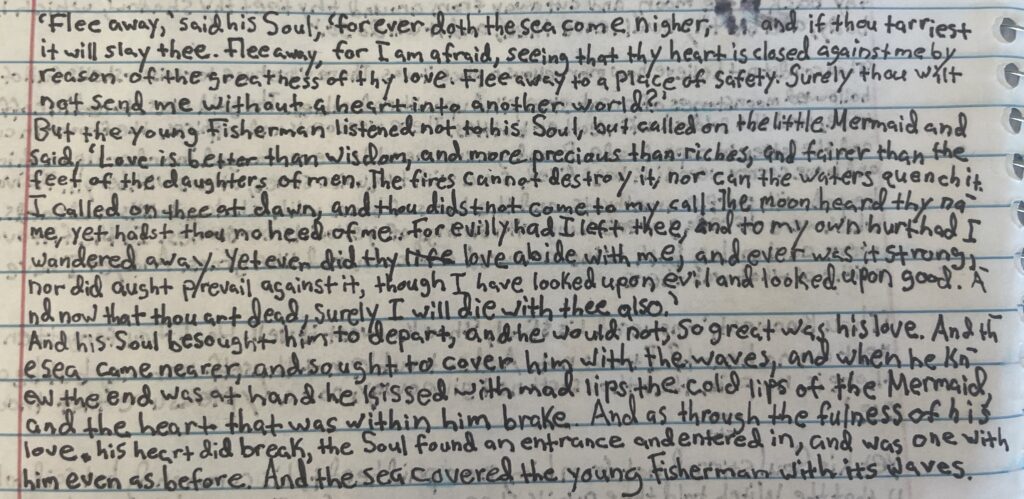 'Flee away,' said his Soul, 'for ever doth the sea come nigher, and if thou tarriest
it will slay thee. Flee away, for I am afraid, seeing that thy heart is closed against me by
reason of the greatness of thy love. Flee away to a place of safety. Surely thou wilt
not send me without a heart into another world?'
But the young Fisherman listened not to his Soul, but called on the little Mermaid and
said, 'Love is better than wisdom, and more precious than riches, and fairer than the
feet of the daughters of men. The fires cannot destroy it, nor can the waters quench it.
I called on thee at dawn, and thou didst not come to my call. The moon heard thy na-
me, yet hadst thou no heed of me. For evilly had I left thee, and to my own hurt had I
wandered away. Yet ever did thy love abide with me, and ever was it strong,
nor did aught prevail against it, though I have looked upon evil and looked upon good. A-
nd now that thou art dead, surely I will die with thee also.'
And his Soul besought him to depart, and he would not, so great was his love. And th-
e sea came nearer, and sought to cover him with the waves, and when he kn-
ew the end was at hand he kissed with mad lips the cold lips of the Mermaid,
and the heart that was within him brake. And as through the fulness of his
love his heart did break, the Soul found an entrance and entered in, and was one with
him even as before. And the sea covered the young Fisherman with its waves.